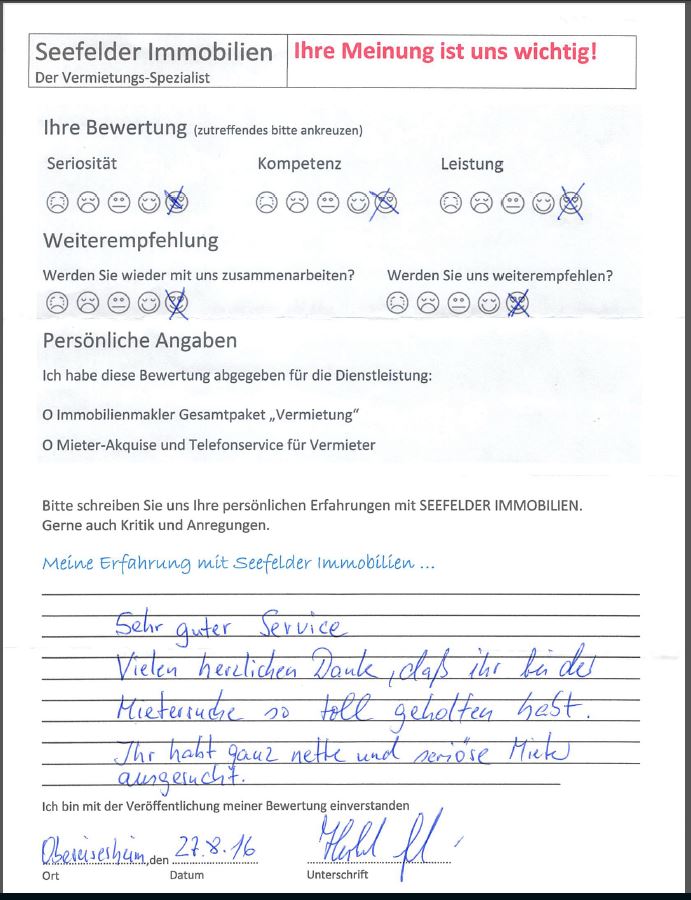 Seefelder Immobilien
Der Vermietungs-Spezialist
Ihre Meinung ist uns wichtig!
Ihre Bewertung (zutreffendes bitte ankreuzen)
Seriosität Kompetenz Leistung
Weiterempfehlung
Werden Sie wieder mit uns zusammenarbeiten? Werden Sie uns weiterempfehlen?
Persönliche Angaben
Ich habe diese Bewertung abgegeben für die Dienstleistung:
O Immobilienmakler Gesamtpaket „Vermietung“
O Mieter-Akquise und Telefonservice für Vermieter
Bitte schreiben Sie uns Ihre persönlichen Erfahrungen mit SEEFELDER IMMOBILIEN.
Gerne auch Kritik und Anregungen.
Meine Erfahrung mit Seefelder Immobilien ...
Sehr guter Service
Vielen herzlichen Dank, daß ihr bei der
Mietersuche so toll geholfen habt.
Ihr habt ganz nette und seriöse Mieter
ausgesucht.
Ich bin mit der Veröffentlichung meiner Bewertung einverstanden
Obereisesheim, den 27.8.16
Ort Datum Unterschrift